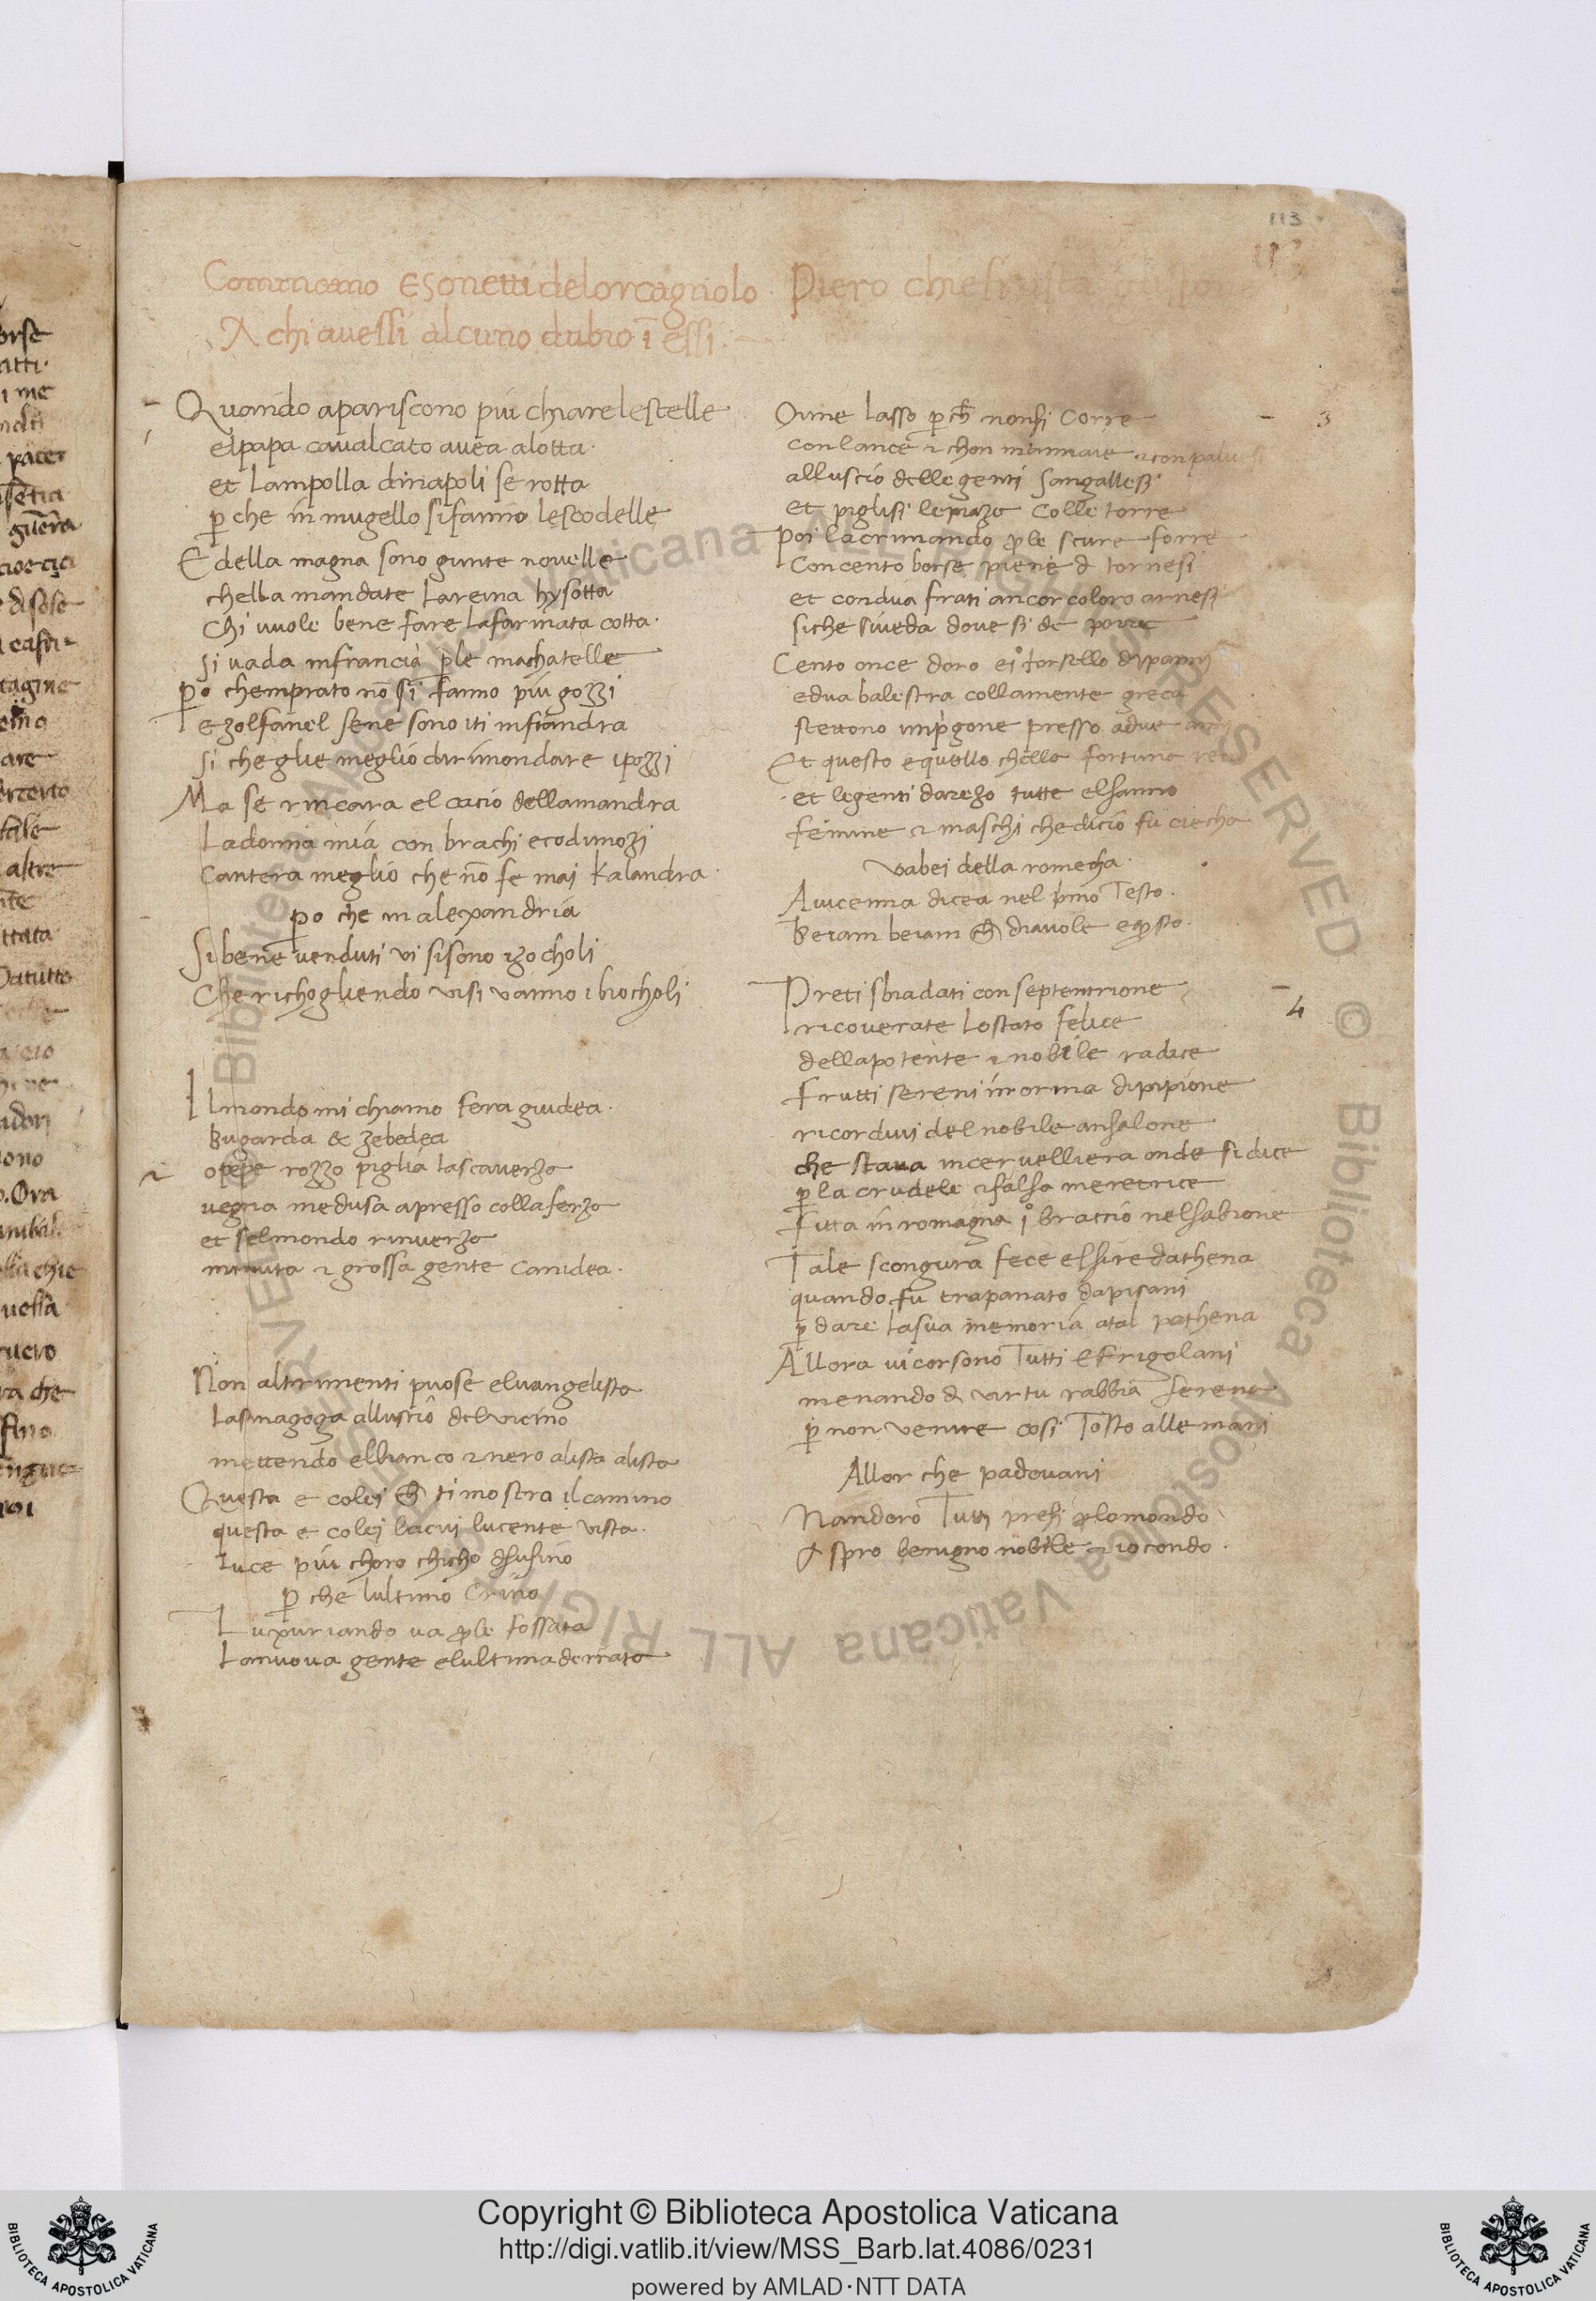 113
Cominciano esonetti delorcagniolo. Piero chie
A chi avessi alcuno dubio ī essi.
Quando apariscono piu chiare le stelle
elpapa cavalcato avea alotta.
et Lampolla dinapoli se rotta
ꝑ che in mugello sifanno lescodelle
E della magna sono giunte novelle
chella mandate Lareina hysotta
Chi vuole bene fare lafarinata cotta.
si vada infrancia ꝑle machatelle
ꝑo chemprato nō si fanno più gozzi
e zolfanel sene sono iti infiandra
si che glie meglio dirimondare ipozzi
Ma se rincara el cacio dellamandra
Ladonna mia con brachi ecodimozi
Cantera meglio che nō fe mai Kalandra.
ꝑo che in alexandria
Si bene venduti vi sisono izocholi
Che richogliendo visi vanno ibiocholi
2
Il mondo mi chiamo fera giudea.
Bugarda & zebedea
o pepe rozzo piglia lascaverza
vegna medusa apresso collaferza
et selmondo rinverza
minuta ⁊ grossa gente Canidea.
Non altrimenti puose elvangelista
Lasinagoga alluscio delvicino
mettendo elbianco ⁊ nero alista alista
Questa e colei ch ti mostra il camino
questa e colei lacui lucente vista.
luce piu choro chicho dsusino
ꝑ che lultimo Crino
Luxuriando va ꝑle fossata
Lanuova gente elultima derrata
3
Oime Lasso ꝑ ch nonsi Corre
con lance ⁊ chon mannaie ⁊ conpalv
alluscio delle genti sangallesi
et piglisi le piaze Colle torre
Poi lacrimando ꝑle scure forre
Concento borse piene d tornesi
et condua frati ancor coloro arnesi
siche siveda dove si de porre
Cento once doro ei° torsello dipanni
edua balestra collamente greca
stettono inprigone presso adue an
Et questo equello chella fortuna re
et legenti darezo tutte elsanno
femine ⁊ maschi chedicio fu ciecha
vabei della romecha.
Avicenna dicea nel primo Testo.
Beiam beiam ch diavole e questo.
4
Preti sbiadati con septentrione
ricoverate Lostato felice
dellapotente ⁊ nobile radice
frutti sereni informa dipipione
ricordivi delnobile ansalone
che stava incervelliera onde si dice
ꝑ la crudele ⁊ falsa meretrice
fitta in romagna i° braccio nelsabione
Tale scongiura fece elsire dathena
quando fu trapanato dapisani
ꝑ dare lasua memoria atal pathena
Allora vicorsono Tutti Efrigolani
menando d virtu rabbia serena
ꝑ non venire cosi Tosto alle mani
Allor che padovani
Nandoro Tutti presi ꝑlomondo
Aspro benigno nobile ⁊ iocondo.
Copyright © Biblioteca Apostolica Vaticana
http://digi.vatlib.it/view/MSS_Barb.lat.4086/0231
powered by AMLAD·NTT DATA